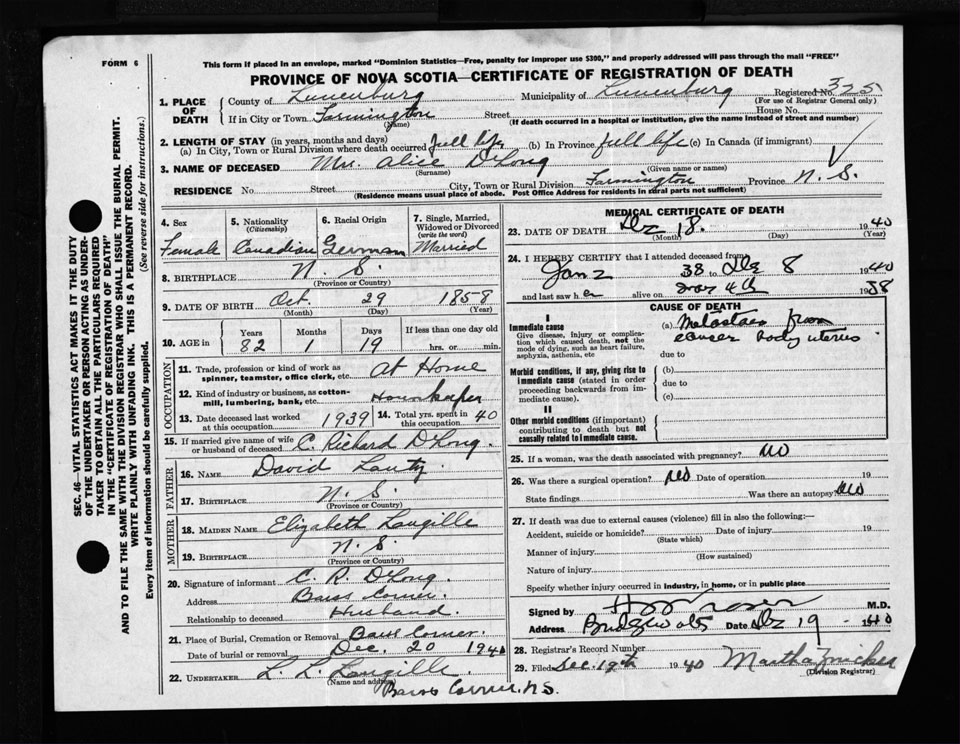 FORM 6
This form if placed in an envelope, marked "Dominion Statistics—Free, penalty for improper use $300," and properly addressed will pass through the mail "FREE"
PROVINCE OF NOVA SCOTIA—CERTIFICATE OF REGISTRATION OF DEATH
1. PLACE OF DEATH County of Lunenburg Municipality of Lunenburg Registered No. 325
(For use of Registrar General only)
If in City or Town Farmington Street House No.
(Name) (If death occurred in a hospital or institution, give the name instead of street and number)
2. LENGTH OF STAY (in years, months and days)
(a) In City, Town or Rural Division where death occurred full life (b) In Province full life (c) In Canada (if immigrant)
3. NAME OF DECEASED Mrs. Alice DLong
(Surname) (Given name or names)
RESIDENCE No. Street City, Town or Rural Division Farmington Province N. S.
(Residence means usual place of abode. Post Office Address for residents in rural parts not sufficient)
4. Sex Female
5. Nationality (Citizenship) Canadian
6. Racial Origin German
7. Single, Married, Widowed or Divorced (write the word) Married
8. BIRTHPLACE N. S.
(Province or Country)
9. DATE OF BIRTH Oct. 29 1858
(Month) (Day) (Year)
10. AGE in Years 82 Months 1 Days 19 If less than one day old hrs. or min.
OCCUPATION
11. Trade, profession or kind of work as spinner, teamster, office clerk, etc. At Home
12. Kind of industry or business, as cotton-mill, lumbering, bank, etc.
13. Date deceased last worked at this occupation 1939 14. Total yrs. spent in this occupation 40
15. If married give name of wife or husband of deceased C. Richard DLong.
FATHER
16. NAME David
17. BIRTHPLACE N. S.
(Province or Country)
MOTHER
18. MAIDEN NAME Elizabeth Langille
19. BIRTHPLACE N. S.
(Province or Country)
20. Signature of informant C. R. DLong.
Address Barss Corner.
Relationship to deceased Husband.
21. Place of Burial, Cremation or Removal Barss Corner.
Date of burial or removal Dec. 20 1940
22. UNDERTAKER L. L. Langille
(Name and address)
Barss Corner, N.S.
MEDICAL CERTIFICATE OF DEATH
23. DATE OF DEATH Dec 18. 1940
(Month) (Day) (Year)
24. I HEREBY CERTIFY that I attended deceased from
Jan 2 38 to Dec 8 1940
and last saw her alive on 4th 1938
CAUSE OF DEATH
I
Immediate cause
Give disease, injury or complication which caused death, not the mode of dying, such as heart failure, asphyxia, asthenia, etc
(a) from
cancer body uterus
due to
Morbid conditions, if any, giving rise to immediate cause (stated in order proceeding backwards from immediate cause).
(b)
due to
(c)
II
Other morbid conditions (if important) contributing to death but not causally related to immediate cause.
25. If a woman, was the death associated with pregnancy? No
26. Was there a surgical operation? No Date of operation 19
State findings Was there an autopsy? No
27. If death was due to external causes (violence) fill in also the following:—
Accident, suicide or homicide? Date of injury 19
(State which)
Manner of injury
(How sustained)
Nature of injury
Specify whether injury occurred in industry, in home, or in public place
Signed by M.D.
Address Date Dec 19 1940
28. Registrar's Record Number
29. Filed Dec. 19th 1940 Martha
(Division Registrar)
SEC. 46—VITAL STATISTICS ACT MAKES IT THE DUTY
OF THE UNDERTAKER OR PERSON ACTING AS UNDER-
TAKER TO OBTAIN ALL THE PARTICULARS REQUIRED
IN THE "CERTIFICATE OF REGISTRATION OF DEATH"
AND TO FILE THE SAME WITH THE DIVISION REGISTRAR WHO SHALL ISSUE THE BURIAL PERMIT.
WRITE PLAINLY WITH UNFADING INK. THIS IS A PERMANENT RECORD.
Every item of information should be carefully supplied. (See reverse side for instructions.)